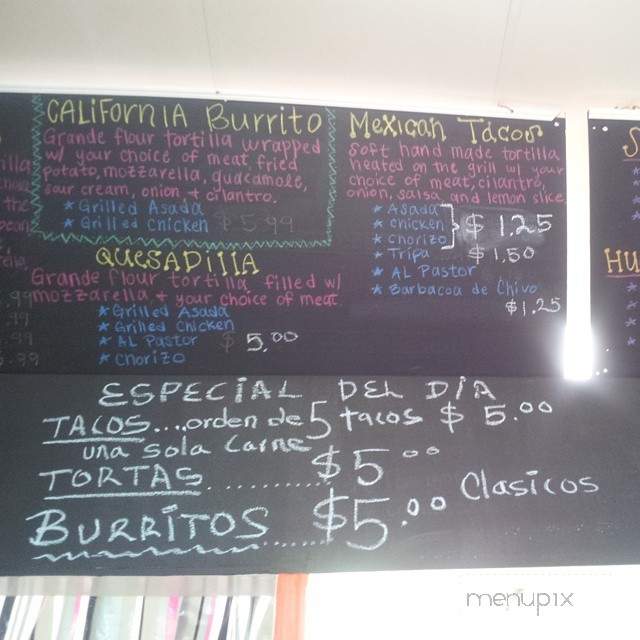 CALiFornIA Burrito
Grande flour tortilla wrapped
w/ your choice of meat, fried
potato, mozzarella, guacamole,
sour cream, onion + cilantro.
* Grilled Asada
* Grilled Chicken $5.99
QUESADillA
Grande flour tortilla filled w/
mozzarella + your choice of meat.
* Grilled Asada
* Grilled Chicken
* AL Pastor $ 5.00
* Chorizo
Mexican Tacos
Soft hand made tortilla
heated on the grill w/ your
choice of meat, cilantro,
onion, salsa and lemon slice.
* Asada
* Chicken $ 1.25
* Chorizo
* Tripa $ 1.50
* AL Pastor
* Barbacoa de Chivo
$1.25
HU
ESPECiAL DEL DiA
TACOS...orden de 5 tacos $ 5.00
una sola Carne
TORTAS.......... $5.00
BURRiTOS...... $5.00 Clasicos
menupix